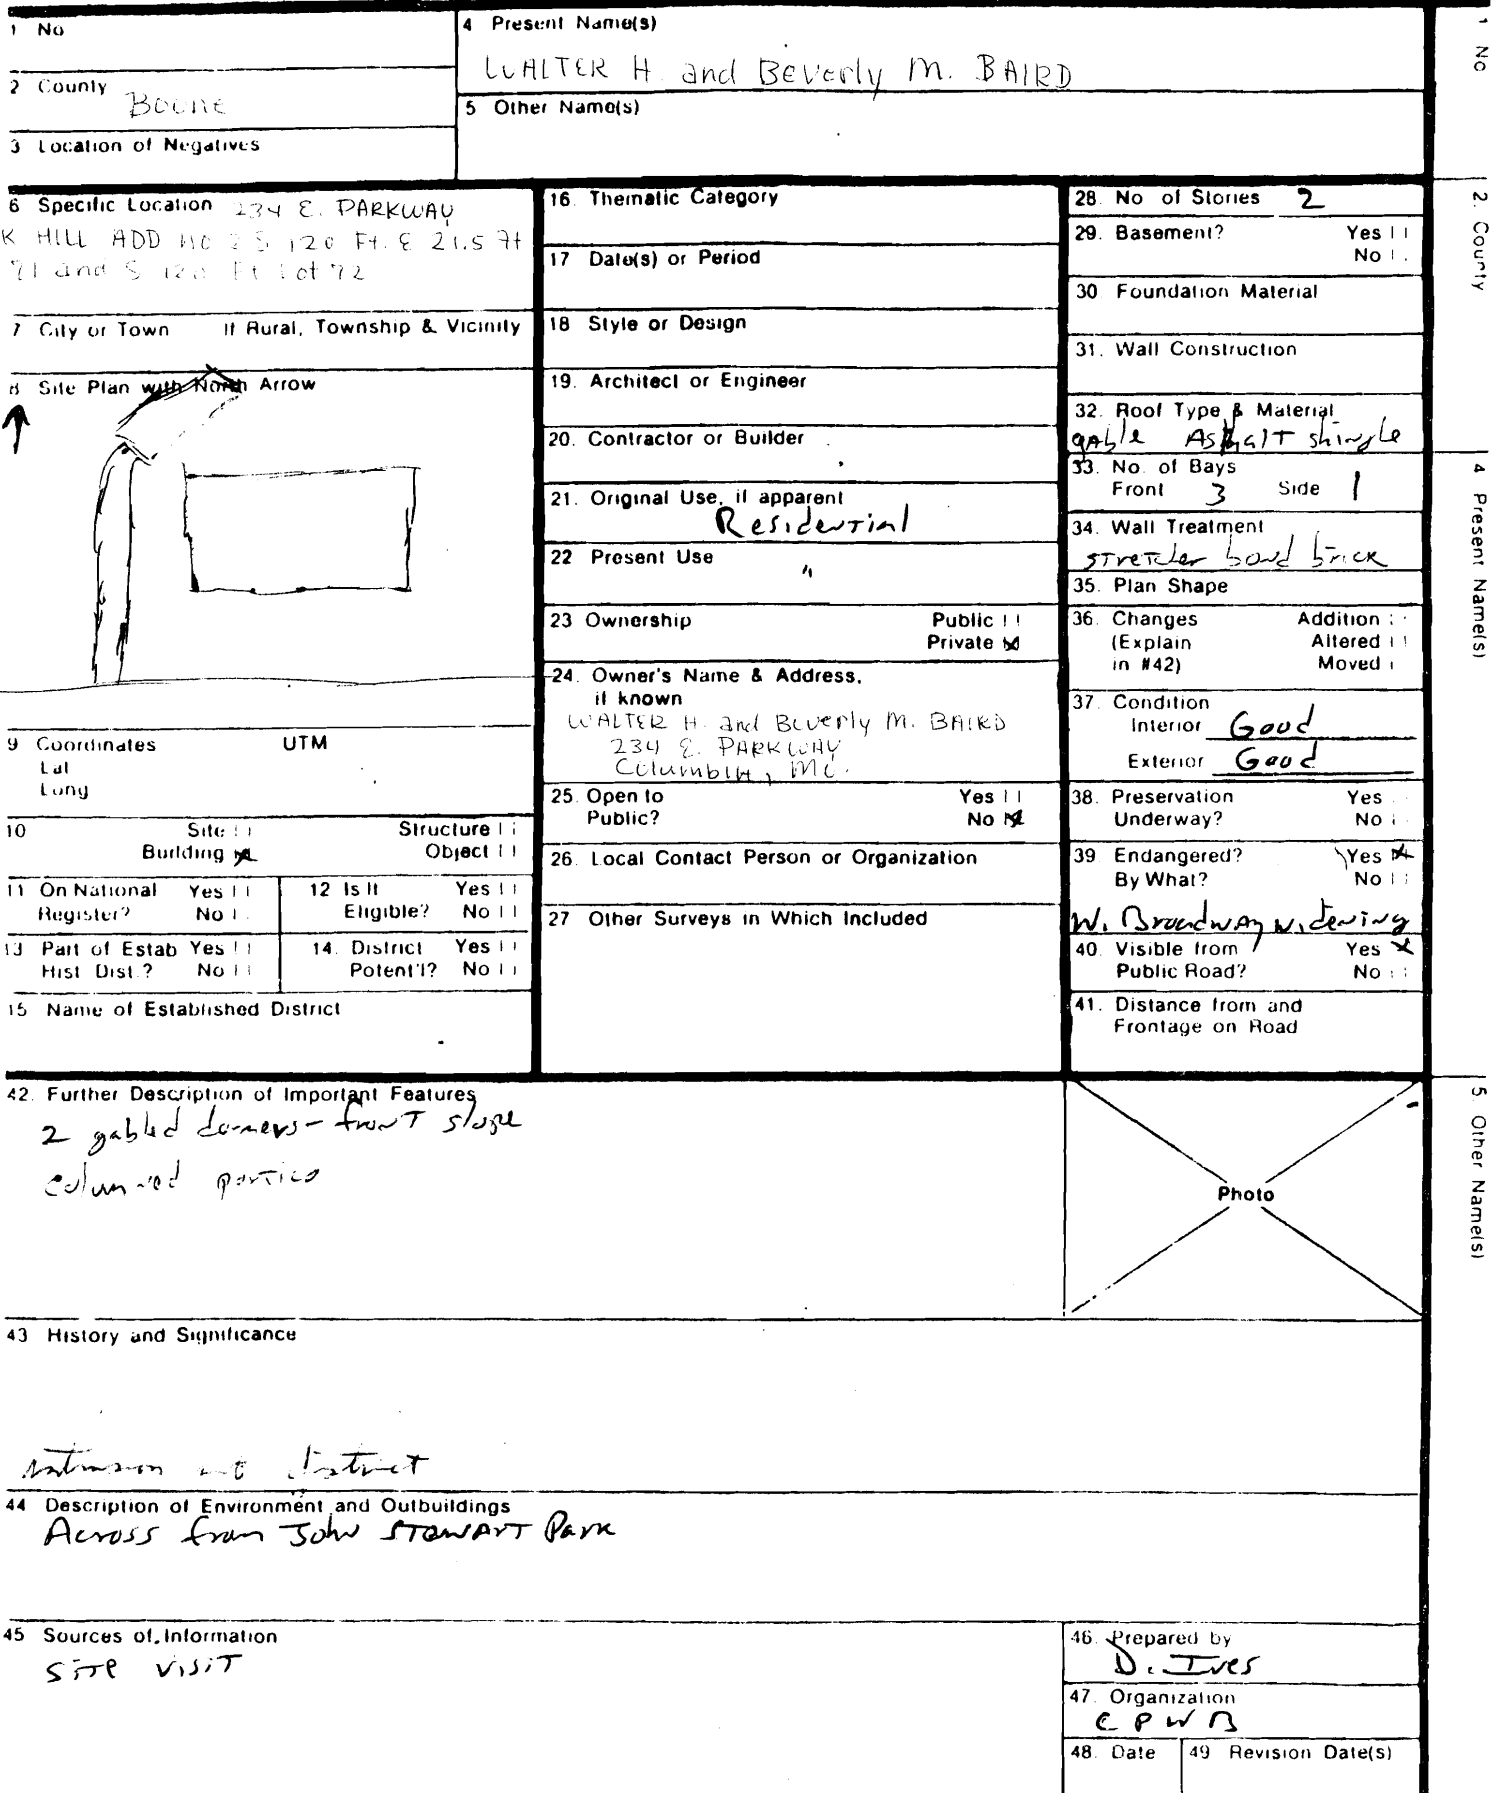 1 No
4 Present Name(s)
WALTER H. and Beverly M. BAIRD
2 County
Boone
5 Other Name(s)
3 Location of Negatives
6 Specific Location 234 E. PARKWAY
K HILL ADD NO 2 S 120 Ft. E 21.5 Ft
71 and S 120 Ft Lot 72
7 City or Town If Rural, Township & Vicinity
8 Site Plan with North Arrow
9 Coordinates UTM
Lat
Long
10 Site
Structure
Building
Object
11 On National Register? Yes No
12 Is It Eligible? Yes No
13 Part of Estab Hist Dist.? Yes No
14. District Potent'l? Yes No
15 Name of Established District
16. Thematic Category
17 Date(s) or Period
18 Style or Design
19. Architect or Engineer
20. Contractor or Builder
21. Original Use, if apparent
Residential
22 Present Use
"
23 Ownership Public
Private
24. Owner's Name & Address,
if known
WALTER H. and Beverly M. BAIRD
234 E. PARKWAY
Columbia, Mo.
25. Open to Yes
Public? No
26. Local Contact Person or Organization
27 Other Surveys in Which Included
28. No of Stories 2
29. Basement? Yes
No
30 Foundation Material
31. Wall Construction
32. Roof Type & Material
gable Asphalt shingle
33. No. of Bays
Front 3 Side 1
34. Wall Treatment
stretcher bond brick
35. Plan Shape
36. Changes Addition
(Explain Altered
in #42) Moved
37. Condition
Interior Good
Exterior Good
38. Preservation Yes
Underway? No
39 Endangered? Yes
By What? No
W. Broadway widening
40. Visible from Yes
Public Road? No
41. Distance from and
Frontage on Road
42. Further Description of Important Features
2 gabled dormers - front slope
columned portico
Photo
43 History and Significance
district
44 Description of Environment and Outbuildings
Across from John Stewart Park
45 Sources of Information
Site visit
46. Prepared by
D. Ives
47. Organization
CPWB
48. Date
49 Revision Date(s)
1 No
2. County
4 Present Name(s)
5. Other Name(s)